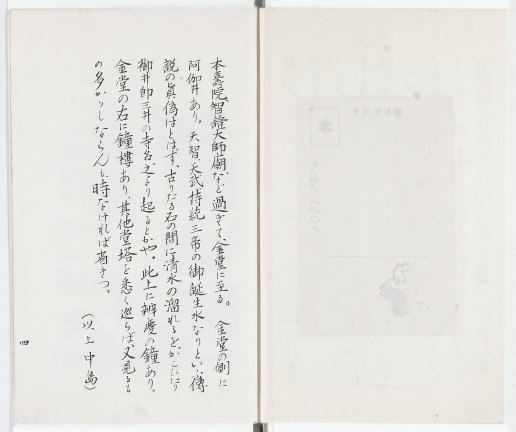 本壽院、智證大師廟など過ぎて、金堂に至る。金堂の側に
阿伽井あり。天智、天武、持統三帝の御誕生水なりといふ傳
説の眞僞はとはず、古りたる石の間に清水の溜れるをかこひたり
御井即三井の寺名之より起るとかや。此上に辨慶の鐘あり。
金堂の右に鐘樓あり、其他堂塔を悉く巡らば、又見るも
の多かりしならんも、時なければ省きつ。
(以上中島)
四